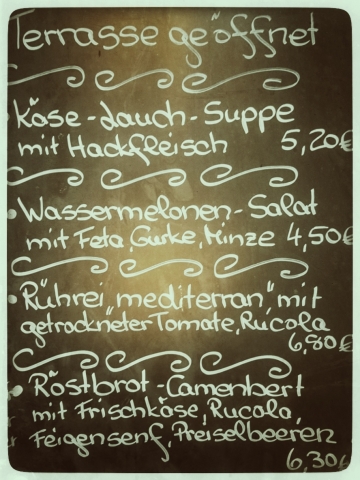 Terrasse geöffnet
Käse-Lauch-Suppe
mit Hackfleisch 5,20€
Wassermelonen-Salat
mit Feta, Gurke, Minze 4,50€
Rührei „mediterran" mit
getrockneter Tomate, Rucola
6,80€
Röstbrot-Camenbert
mit Frischkäse, Rucola,
Feigensenf, Preiselbeeren
6,30€